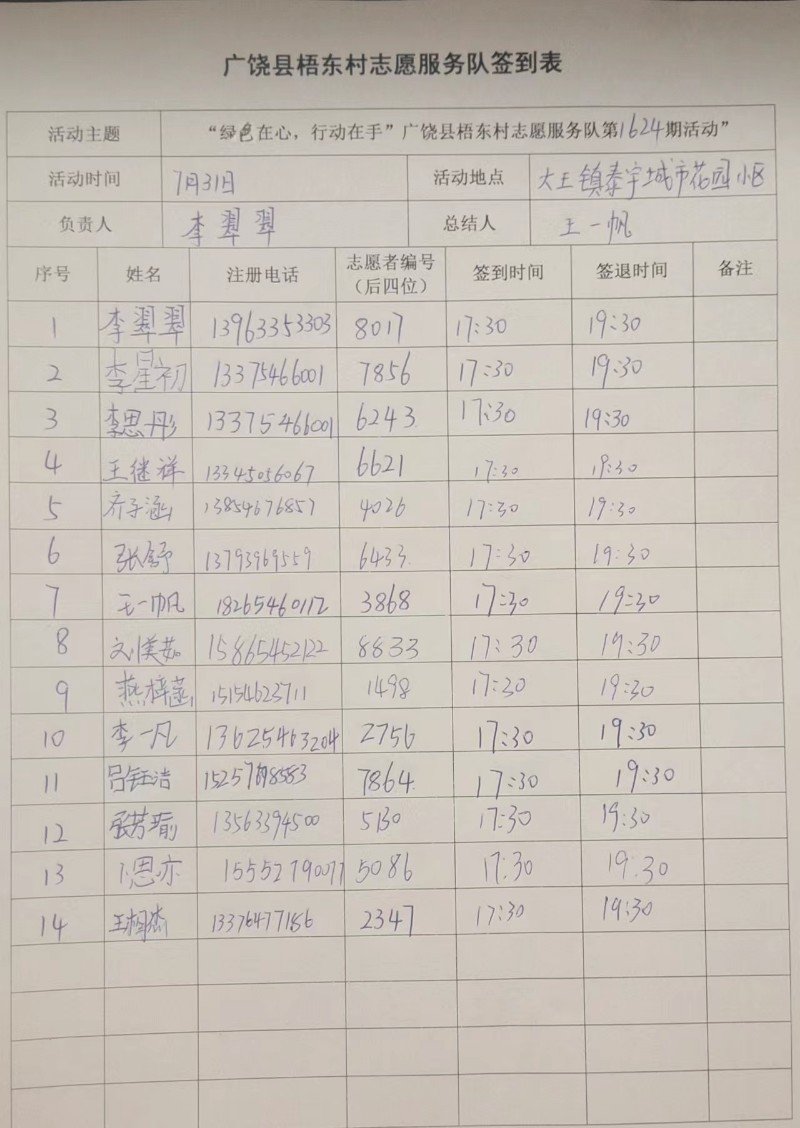 广饶县梧东村志愿服务队签到表
活动主题 “绿色在心，行动在手”广饶县梧东村志愿服务队第1624期活动”
活动时间 7月31日 活动地点 大王镇泰宇城市花园小区
负责人 李翠翠 总结人 王一帆
序号 姓名 注册电话 志愿者编号（后四位） 签到时间 签退时间 备注
1 李翠翠 13963353303 8017 17:30 19:30
2 李星初 13375466001 7856 17:30 19:30
3 李思彤 13375466001 6243 17:30 19:30
4 王继祥 13345056067 6621 17:30 19:30
5 乔子涵 13854676857 4026 17:30 19:30
6 张舒 13793969559 6433 17:30 19:30
7 王一帆 18265460112 3868 17:30 19:30
8 刘美茹 15865452122 8833 17:30 19:30
9 燕梓菡 15154623711 1498 17:30 19:30
10 李一凡 13625463204 2756 17:30 19:30
11 吕钰洁 7864 17:30 19:30
12 张芳瑜 13563394500 5130 17:30 19:30
13 卜恩亦 15552790077 5086 17:30 19:30
14 2347 17:30 19:30